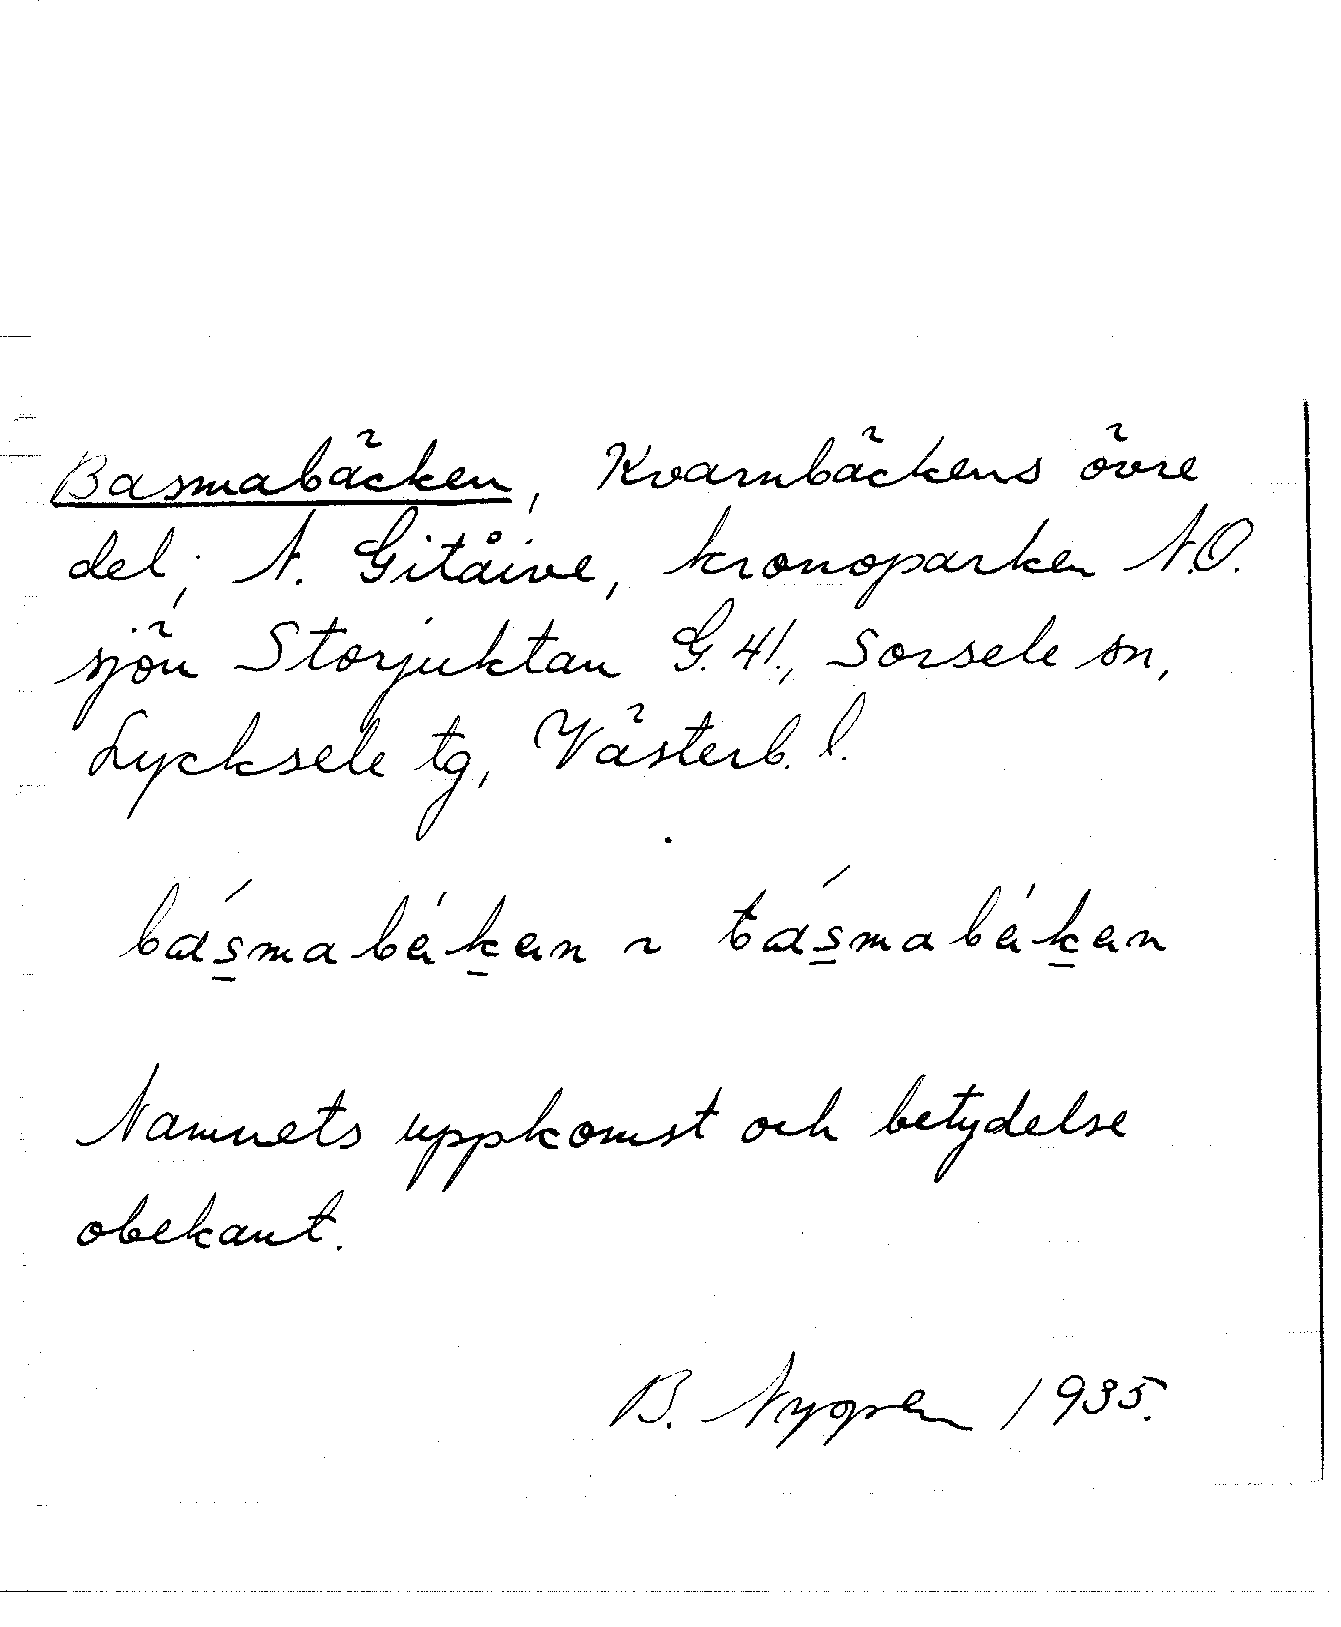 Basmabäcken, Kvarnbäckens övre
del; N. Gitåive, kronoparken N.O.
sjön Storjuktan G. 41., Sorsele sn,
Lycksele tg, Västerb. l.
básmabékan ~ tásmabékan
Namnets uppkomst och betydelse
obekant.
B. Nygren 1935.